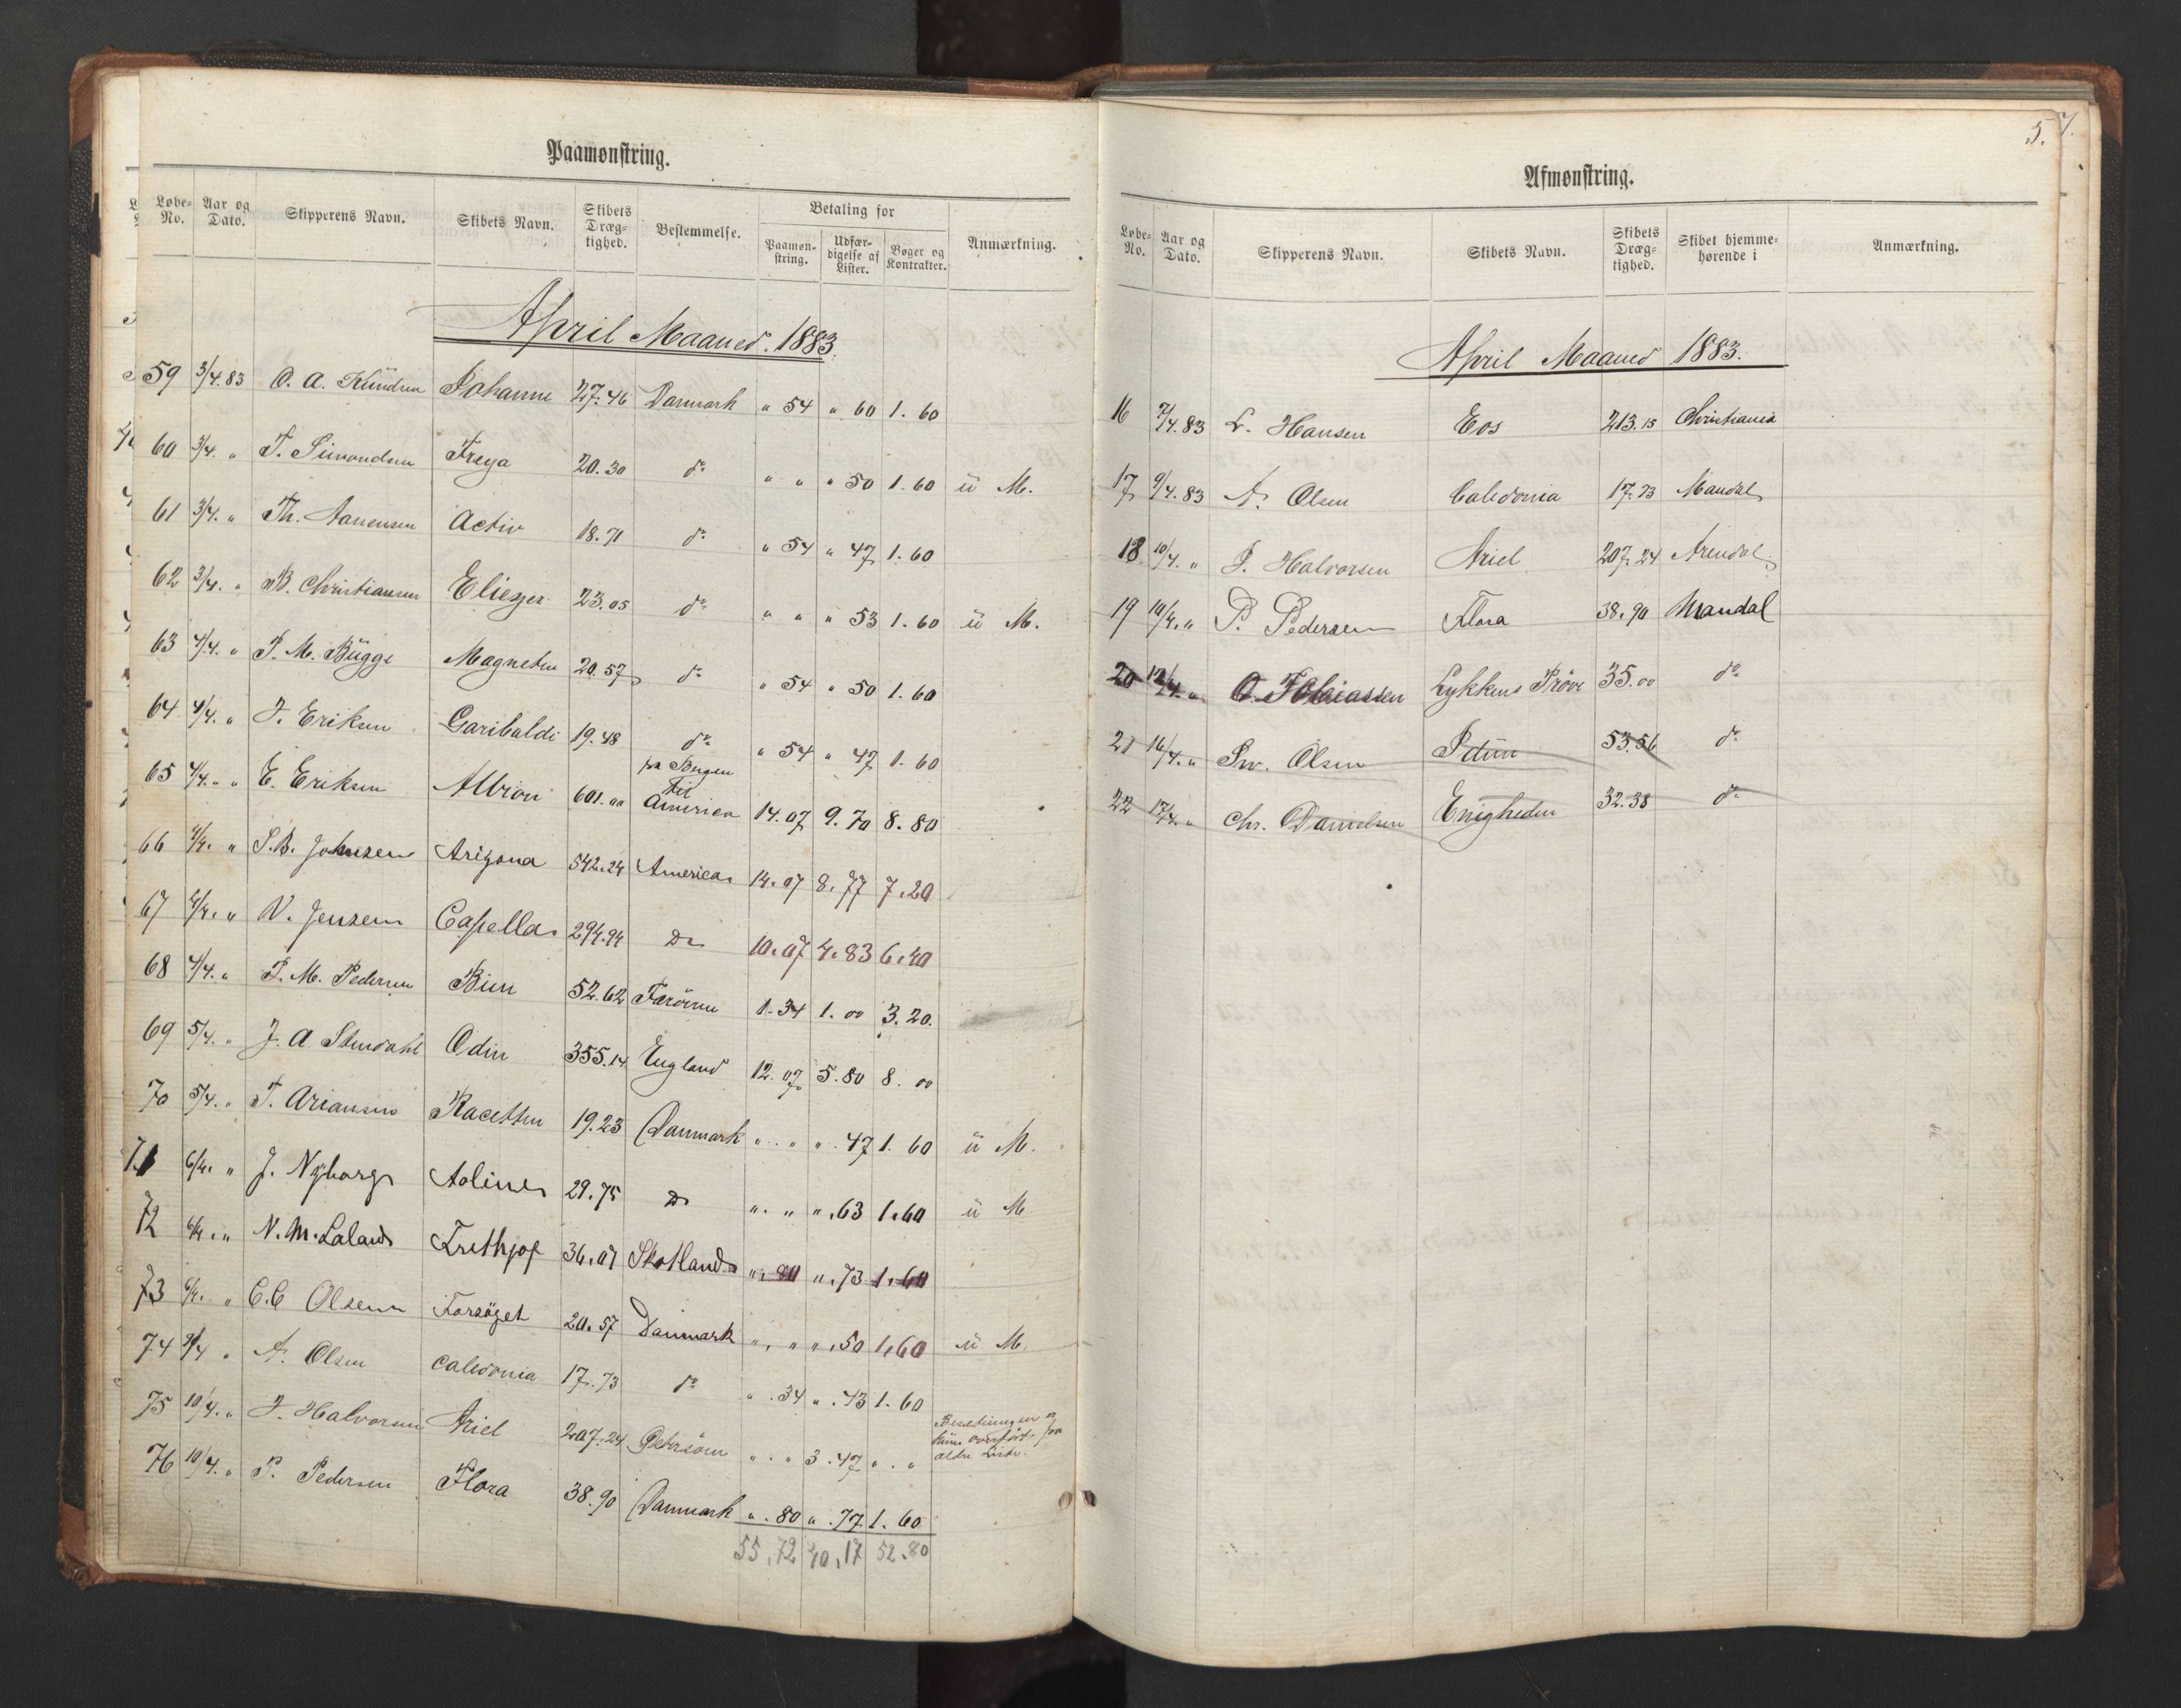 Paamønstring.
Løbe-No. Aar og Dato. Skipperens Navn. Skibets Navn. Skibets Dræg-tighed. Bestemmelse. Betaling for Paamøn-string. Udfær-digelse af Lister. Bøger og Kontrakter. Anmærkning.
April Maaned. 1883.
59 3/4.83 O. A. Knudsen Johanne 27.46 Danmark " 54 " 60 1.60
60 3/4. " T. Simondsen Freya 20.30 do " " " 50 1.60 u M.
61 3/4. " Th. Aanensen Activ 18.71 do " 54 " 47 1.60
62 3/4. " B. Christiansen Eliezer 23.05 do " " " 53 1.60 u M.
63 4/4. " T. M. Bugge Magneten 20.57 do " 54 " 50 1.60
64 4/4. " J. Eriksen Garibaldi 19.48 do " 54 " 47 1.60
65 4/4. " E. Eriksen Albion 601.00 fra Bergen til America 14.07 9.70 8.80
66 4/4. " S.B. Johnsen Arizona 542.24 America 14.07 8.77 7.20
67 4/4. " N. Jensen Capella 294.94 Do 10.07 4.83 6.40
68 4/4. " T. M. Pedersen Bien 52.62 Færöerne 1.34 1.00 3.20.
69 5/4. " J. A. Stendahl Odin 355.14 England 12.07 5.80 8.00
70 5/4. " T. Ariansen Racetten 19.23 Danmark " . " " . 47 1.60 u M.
71 6/4. " J. Nyborg Aoline 29.75 Do " . " " .63 1.60 u M
72 6/4. " N. M. Laland Frithjof 36.07 Skotland " .80 " .73 1.60
73 6/4. " C.C Olsen Forsøget 20.57 Danmark " . " " .50 1.60 u M.
74 9/4 " A. Olsen Caledonia 17.73 do " .34 " .43 1.60
75 10/4. " J. Halvorsen Ariel 207.24 Østersöen " . " 3.47 " . " Besætningen er kun overført fra ældre Liste.
76 10/4. " P. Pedersen Flora 38.90 Danmark " .80 " .77 1.60
55.72 40.17 52.80
5.
7.
Afmønstring.
Løbe-No. Aar og Dato. Skipperens Navn. Skibets Navn. Skibets Dræg-tighed. Skibet hjemme-hørende i Anmærkning.
April Maaned 1883.
16 7/4.83 L. Hansen Eos 213.15 Christiania
17 9/4.83 A. Olsen Caledonia 17.73 Mandal
18 10/4. " J. Halvorsen Ariel 207.24 Arendal
19 10/4. " P. Pedersen Flora 38.90 Mandal
20 12/4. " O. Tobiassen Lykkens Pröve 35.00 do
21 16/4. " Sv. Olsen Idun 53.56 do
22 17/4. " Chr. Danielsen Enigheden 32.38 do